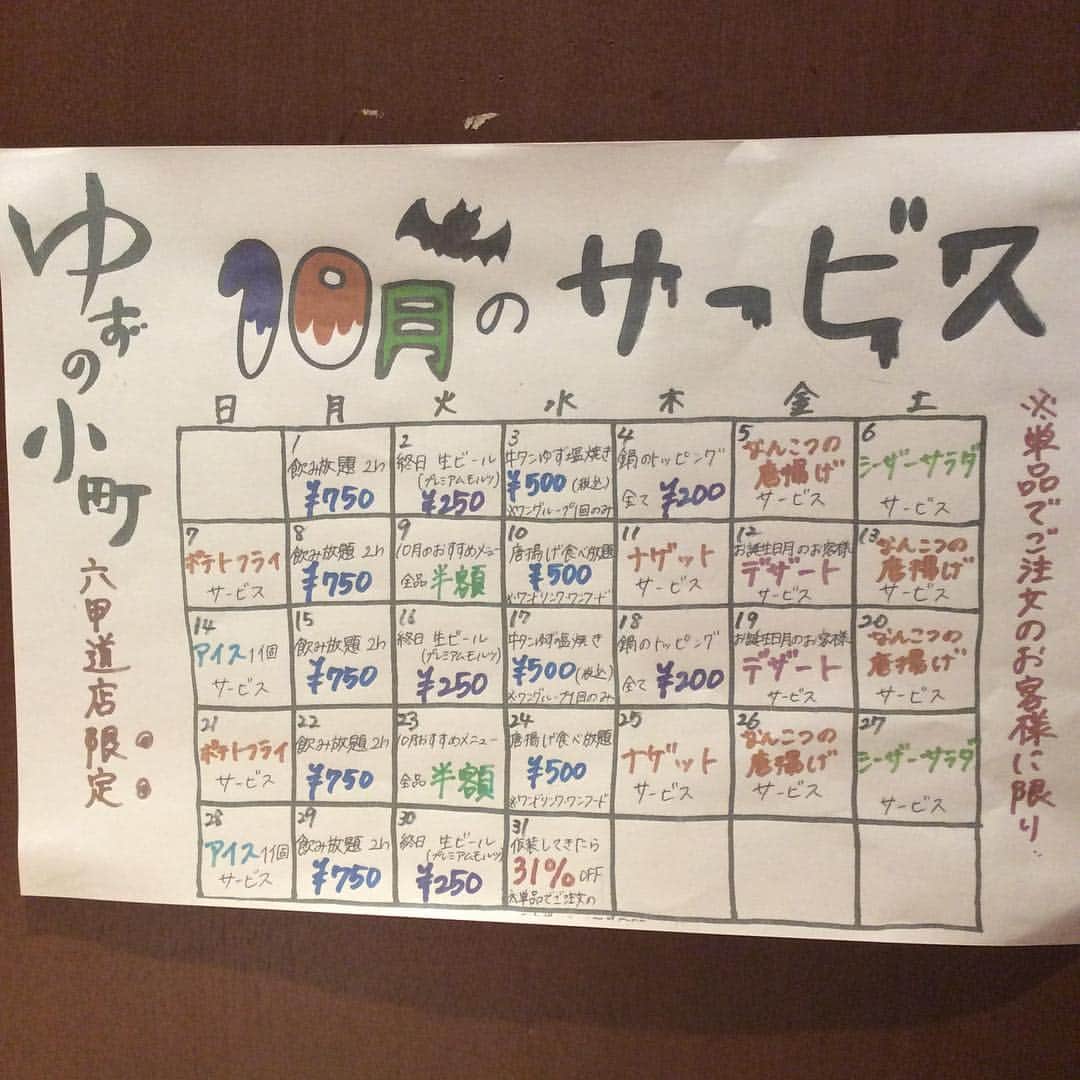 ゆずの小町
六甲道店限定
10月のサービス
※単品でご注文のお客様に限り
日 月 火 水 木 金 土
1
飲み放題 2h
¥750
2
終日 生ビール
(プレミアムモルツ)
¥250
3
牛タンゆず塩焼き
¥500 (税込)
※ワングループ1回のみ
4
鍋のトッピング
全て ¥200
5
なんこつの
唐揚げ
サービス
6
シーザーサラダ
サービス
7
ポテトフライ
サービス
8
飲み放題 2h
¥750
9
10月のおすすめメニュー
全品 半額
10
唐揚げ食べ放題
¥500
※ワンドリンク・ワンフード
11
ナゲット
サービス
12
お誕生日月のお客様
デザート
サービス
13
なんこつの
唐揚げ
サービス
14
アイス1個
サービス
15
飲み放題 2h
¥750
16
終日 生ビール
(プレミアムモルツ)
¥250
17
牛タンゆず塩焼き
¥500 (税込)
※ワングループ1回のみ
18
鍋のトッピング
全て ¥200
19
お誕生日月のお客様
デザート
サービス
20
なんこつの
唐揚げ
サービス
21
ポテトフライ
サービス
22
飲み放題 2h
¥750
23
10月おすすめメニュー
全品 半額
24
唐揚げ食べ放題
¥500
※ワンドリンク・ワンフード
25
ナゲット
サービス
26
なんこつの
唐揚げ
サービス
27
シーザーサラダ
サービス
28
アイス1個
サービス
29
飲み放題 2h
¥750
30
終日 生ビール
(プレミアムモルツ)
¥250
31
仮装してきたら
31% OFF
※単品でご注文の